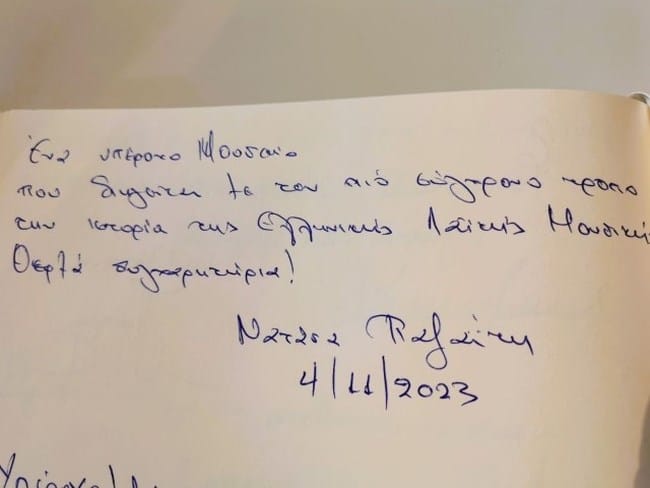 Ένα υπέροχο Μουσείο
που διηγείται με τον πιό σύγχρονο τρόπο
την ιστορία της Ελληνικής Λαϊκής Μουσική
Θερμά συγχαρητήρια!
Νατάσα Παζαΐτη
4/11/2023
Υπέροχο!